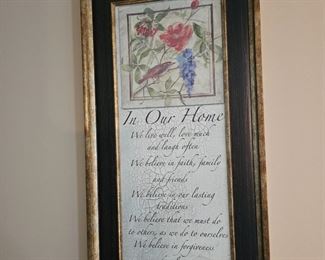 In Our Home
We live well, love much
and laugh often
We believe in faith, family
and friends
We believe in our lasting
traditions
We believe that we must do
to others, as we do to ourselves
We believe in forgiveness